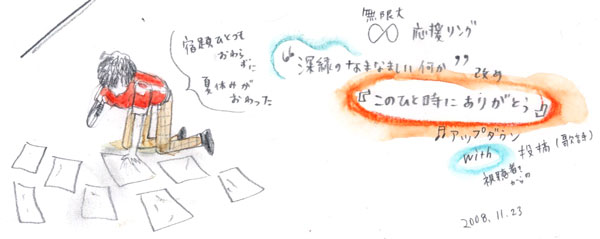 宿題ひとつも
おわら
ずに
夏休みが
おわった
無限大
∞ 応援リング
“深緑のなまなましい何か”
改め
『このひと時にありがとう』
♫アップダウン
with 投稿(歌詞)
視聴者さ
からの
2008.11.23